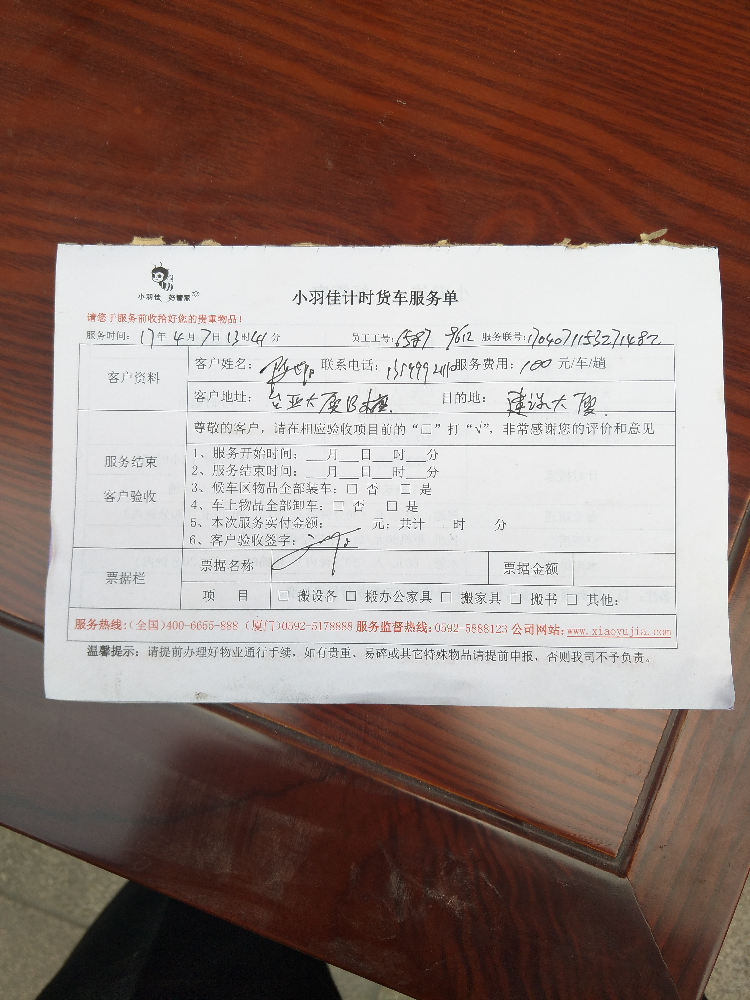 小羽佳 好管家
小羽佳计时货车服务单
请您于服务前收拾好您的贵重物品!
服务时间: 17年4月7日13时41分 员工工号: 6587 9612 服务联号: 1704071153271482
客户资料
客户姓名: 联系电话: 服务费用: 100 元/车/趟
客户地址: 大厦B栋 目的地: 建设大厦
尊敬的客户,请在相应验收项目前的“口”打“√”,非常感谢您的评价和意见
服务结束
客户验收
1、服务开始时间: __月__日__时__分
2、服务结束时间: __月__日__时__分
3、候车区物品全部装车: □ 否 □ 是
4、车上物品全部卸车: □ 否 □ 是
5、本次服务实付金额: 元; 共计 时 分
6、客户验收签字:
票据栏
票据名称 票据金额
项 目 □ 搬设备 □ 搬办公家具 □ 搬家具 □ 搬书 □ 其他:
服务热线:(全国)400-6655-888 (厦门)0592-5178888 服务监督热线:0592-5888123 公司网站:www.xiaoyujia.com
温馨提示: 请提前办理好物业通行手续, 如有贵重、易碎或其它特殊物品请提前申报, 否则我司不予负责。